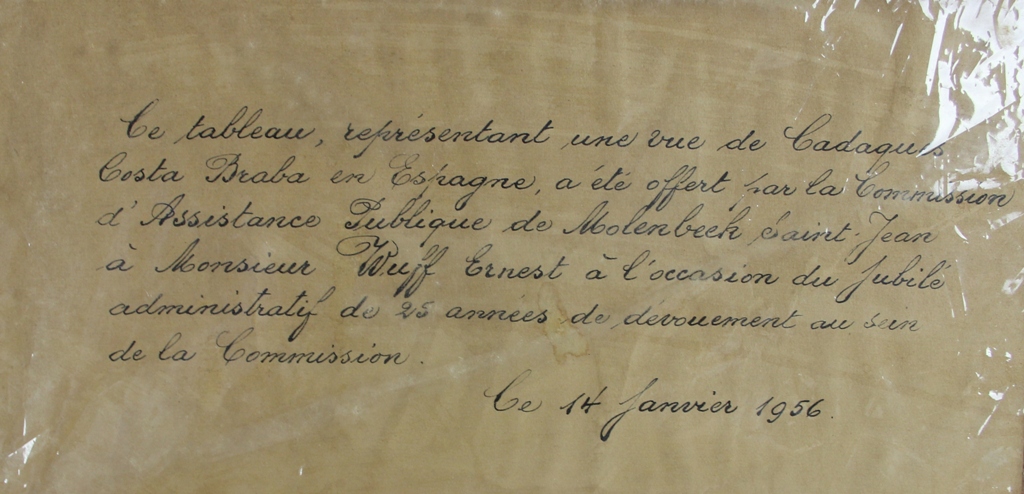 Ce tableau, représentant une vue de Cadaquès
Costa Braba en Espagne, a été offert par la Commission
d'Assistance Publique de Molenbeek Saint-Jean
à Monsieur Wuff Ernest à l'occasion du Jubilé
administratif de 25 années de dévouement au sein
de la Commission.
Ce 14 Janvier 1956.